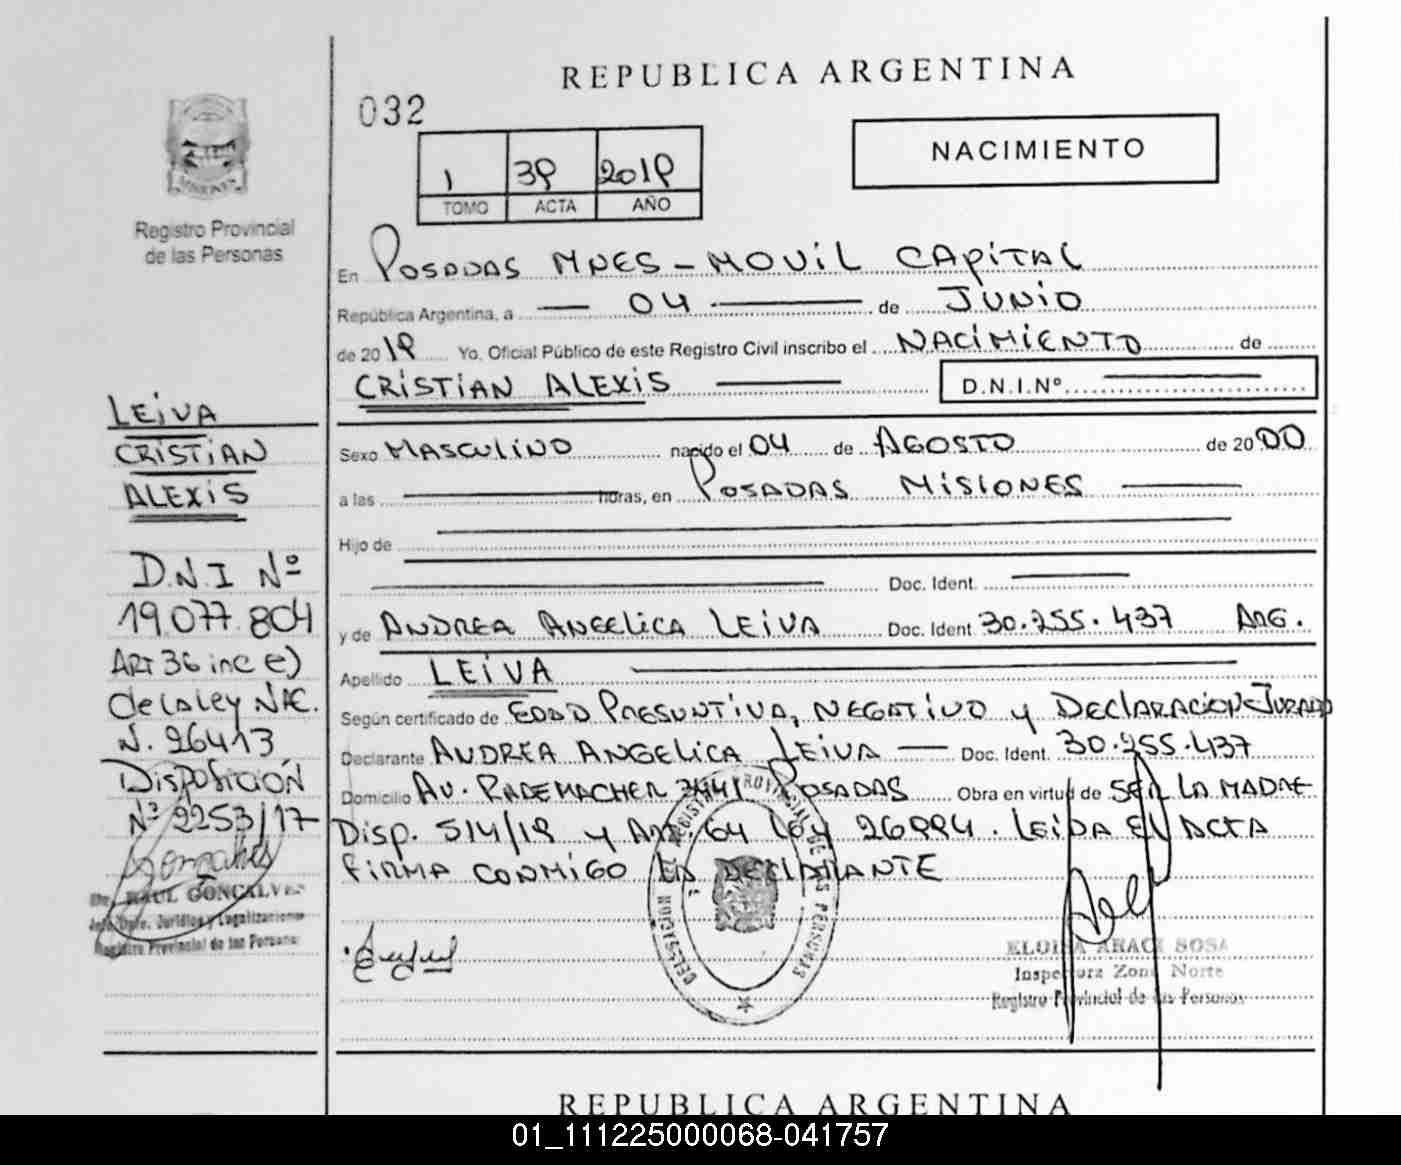 REPUBLICA ARGENTINA
032
NACIMIENTO
1 39 2019
TOMO ACTA AÑO
Registro Provincial
de las Personas
En POSADAS MNES - MOVIL CAPITAL
República Argentina, a — 04 — de JUNIO
de 2019 Yo, Oficial Público de este Registro Civil inscribo el NACIMIENTO de
CRISTIAN ALEXIS — D.N.I.Nº —
LEIVA
CRISTIAN
ALEXIS
D.N.I Nº
19.077.804
ART 36 inc e)
de la ley NAC.
N. 26413
DISPOSICIÓN
Nº 2253/17
RAUL GONCALVES
Jefe Dpto. Jurídico y Legalizaciones
Registro Provincial de las Personas
Sexo MASCULINO nacido el 04 de AGOSTO de 2000
a las — horas, en POSADAS MISIONES —
Hijo de —
— Doc. Ident. —
y de ANDREA ANGELICA LEIVA Doc. Ident 30.255.437 ARG.
Apellido LEIVA —
Según certificado de EDAD PRESUNTIVA, NEGATIVO y DECLARACION JURADA
Declarante ANDREA ANGELICA LEIVA — Doc. Ident. 30.255.437
Domicilio AV. RADEMACHER 3441 POSADAS Obra en virtud de SER LA MADRE
DISP. 514/19 y ART. 64 Ley 26994. LEIDA EL ACTA
FIRMA CONMIGO LA DECLARANTE
REGISTRO PROVINCIAL DE LAS PERSONAS
DELEGACION
ELOISA ARACI SOSA
Inspectora Zona Norte
Registro Provincial de las Personas
REPUBLICA ARGENTINA
01_111225000068-041757